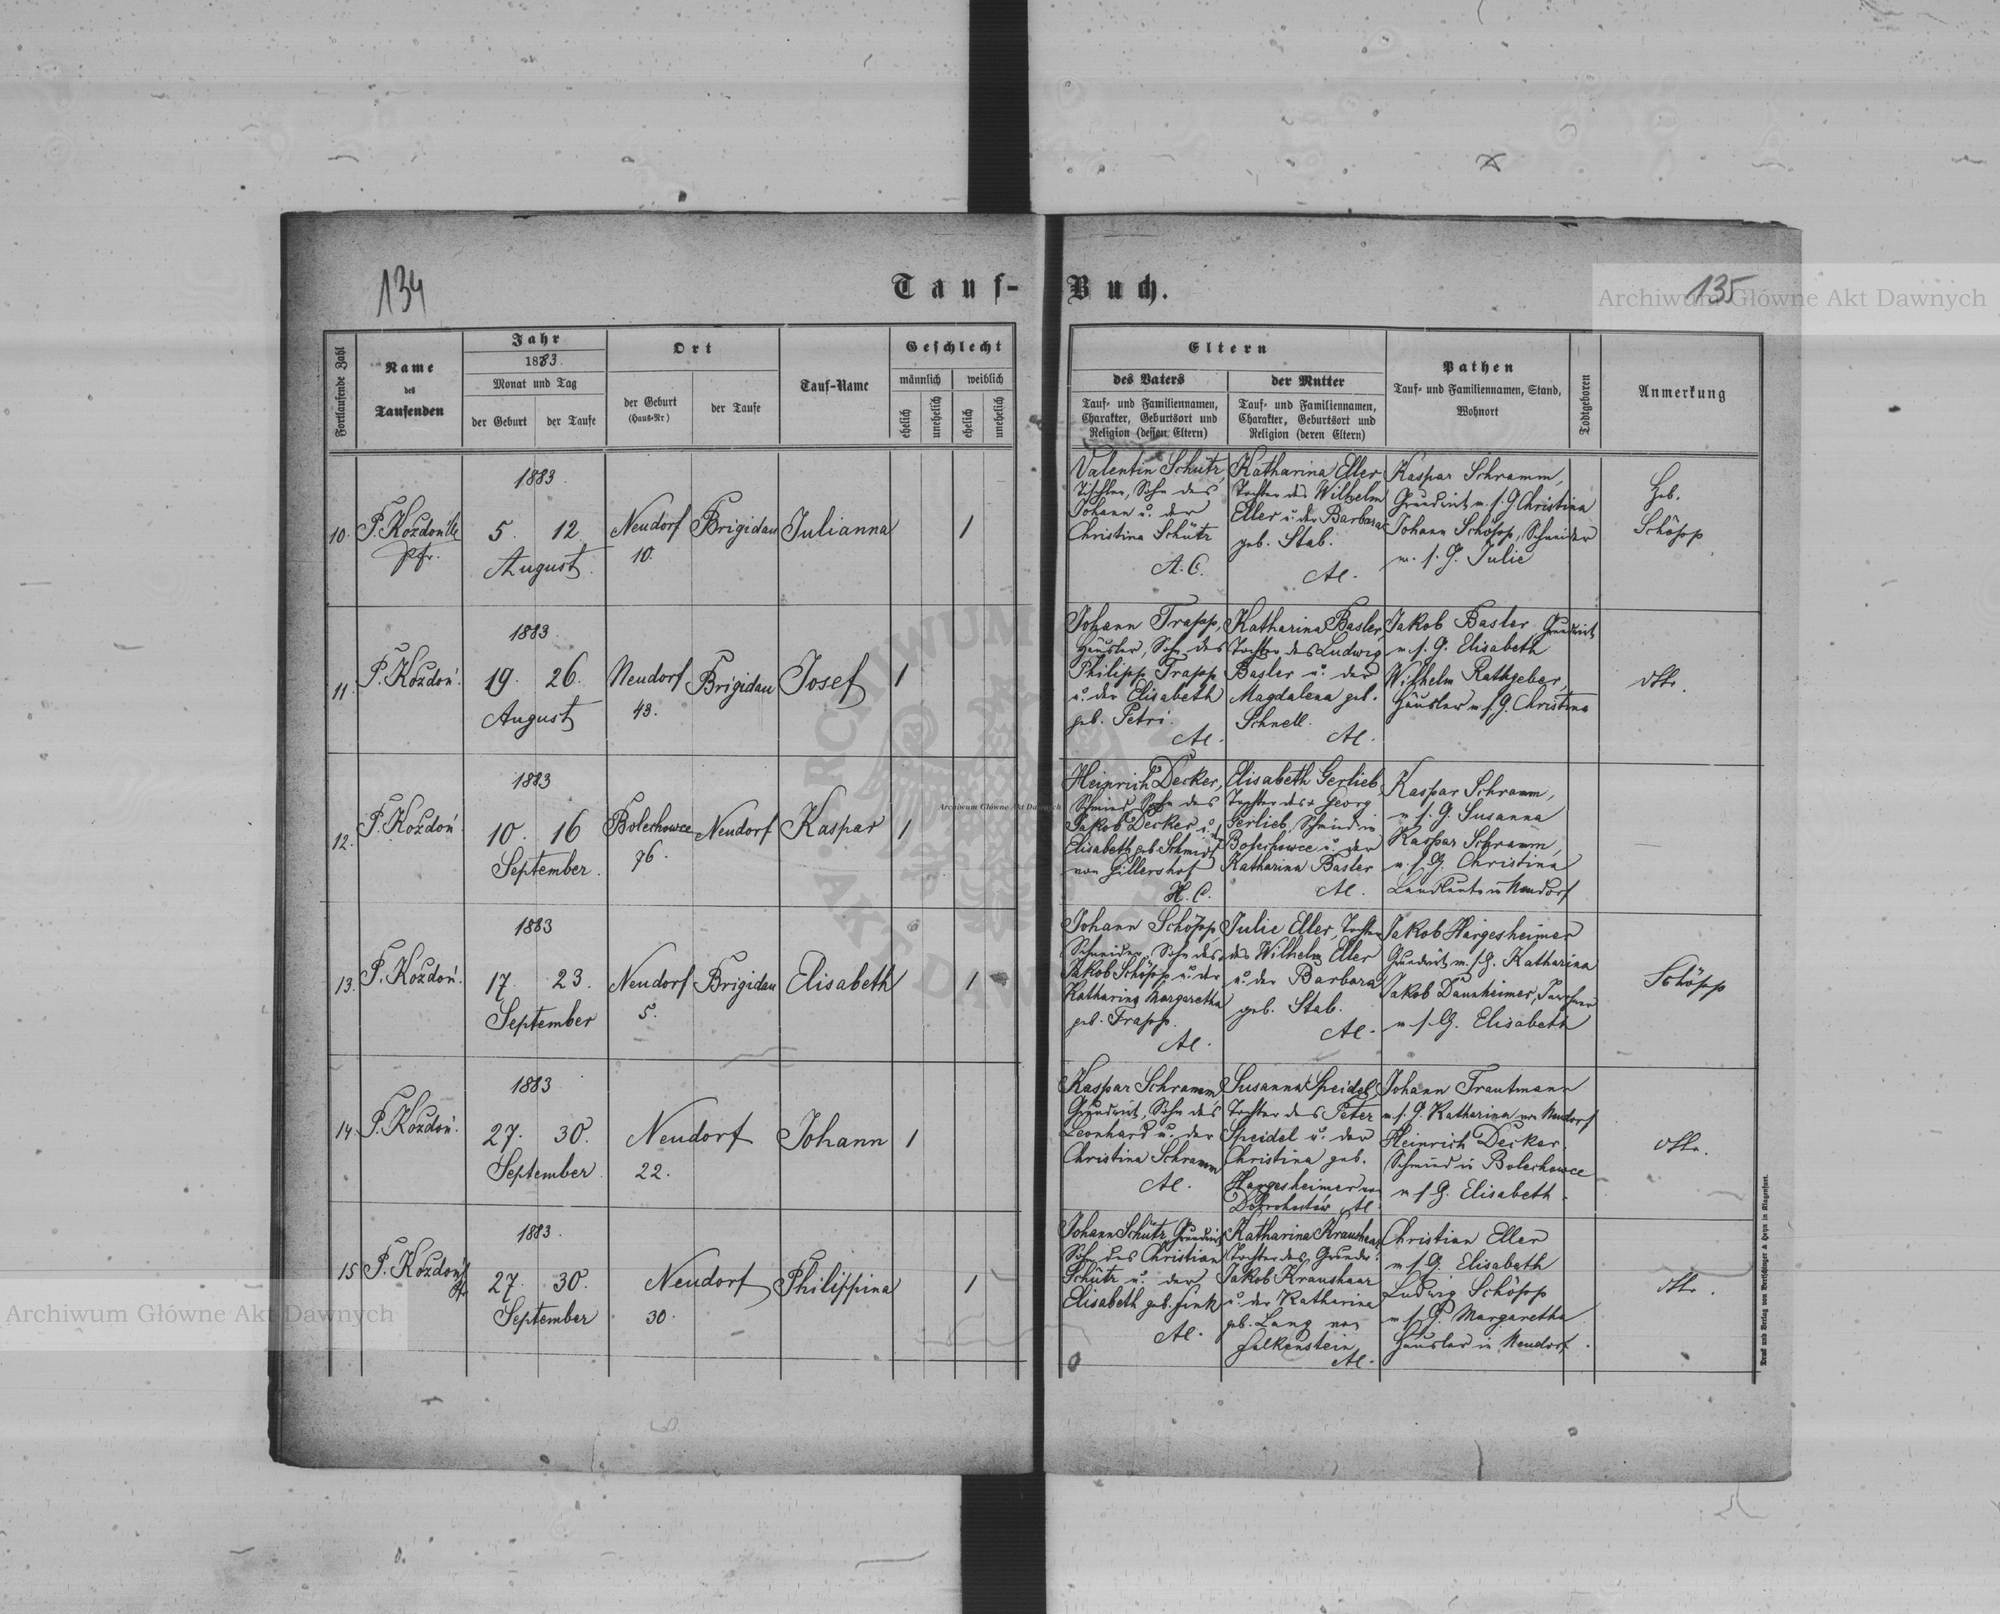 134
Tauf-Buch.
135
Archiwum Główne Akt Dawnych
Fortlaufende Zahl
Name
des
Taufenden
Jahr
1883.
Monat und Tag
der Geburt
der Taufe
Ort
der Geburt
(Haus-Nr.)
der Taufe
Tauf-Name
Geschlecht
männlich
weiblich
ehelich
unehelich
ehelich
unehelich
Eltern
des Vaters
Tauf- und Familiennamen,
Charakter, Geburtsort und
Religion (dessen Eltern)
der Mutter
Tauf- und Familiennamen,
Charakter, Geburtsort und
Religion (deren Eltern)
Pathen
Tauf- und Familiennamen, Stand,
Wohnort
Todtgeboren
Anmerkung
10.
P. Kozdoń
Pfr.
1883.
5. 12.
August.
Neudorf
10.
Brigidau
Julianna
1
Valentin Schütz,
Tischler, Sohn des
Johann u. der
Christina Schütz
A. C.
Katharina Eller,
Tochter des Wilhelm
Eller u. der Barbara
geb. Stab.
AC.
Kaspar Schramm,
Grundwirt m. s. G. Christina
Johann Schöpp, Schneider
m. s. G. Julie
Heb.
Schöpp
11.
P. Kozdoń.
1883.
19. 26.
August
Neudorf
43.
Brigidau
Josef
1
Johann Trapp,
Häusler, Sohn des
Philipp Trapp
u. der Elisabeth
geb. Petri.
AC.
Katharina Basler,
Tochter des Ludwig
Basler u. der
Magdalena geb.
Schnell.
AC.
Jakob Basler Grundwirt
m. s. G. Elisabeth
Wilhelm Rathgeber,
Häusler m. s. G. Christina
dtto.
12.
P. Kozdoń.
1883
10. 16
September.
Bolechowce
76.
Neudorf
Kaspar
1
Heinrich Decker,
Schmied, Sohn des
Jakob Decker u. der
Elisabeth geb. Schmidt
von Gillershof
H. C.
Elisabeth Gerlieb,
Tochter des + Georg
Gerlieb, Schmied in
Bolechowce u. der
Katharina Basler
AC.
Kaspar Schramm,
m. s. G. Susanna
Kaspar Schramm,
m. s. G. Christina
Landleute in Neudorf
Archiwum Główne Akt Dawnych
13.
P. Kozdoń.
1883
17. 23.
September
Neudorf
5.
Brigidau
Elisabeth
1
Johann Schöpp
Schneider, Sohn des
Jakob Schöpp u. der
Katharina Margaretha
geb. Trapp.
AC.
Julie Eller, Tochter
des Wilhelm Eller
u. der Barbara
geb. Stab.
AC.
Jakob Hargesheimer
Grundwirt m. s. G. Katharina
Jakob Dannheimer,
m. s. G. Elisabeth
Schöpp
14.
P. Kozdoń.
1883
27. 30.
September
Neudorf
22.
Johann
1
Kaspar Schramm,
Grundwirt, Sohn des
Leonhard u. der
Christina Schramm
AC.
Susanna Speidel,
Tochter des Peter
Speidel u. der
Christina geb.
Hargesheimer von
Dobrohostów AC.
Johann Trautmann
m. s. G. Katharina von Neudorf
Heinrich Decker,
Schmied in Bolechowce
m. s. G. Elisabeth.
dtto.
15
P. Kozdoń
Pfr.
1883.
27. 30.
September
Neudorf
30.
Philippina
1
Johann Schütz Grundwirt
Sohn des Christian
Schütz u. der
Elisabeth geb. Fink
AC.
Katharina Kraushaar,
Tochter des Grundw.
Jakob Kraushaar
u. der Katharina
geb. Lang von
Falkenstein
AC.
Christian Eller
m. s. G. Elisabeth
Ludwig Schöpp
m. s. G. Margaretha
Häusler in Neudorf.
dtto.
Archiwum Główne Akt Dawnych
Druck und Verlag von Bertschinger & Heyn in Klagenfurt.